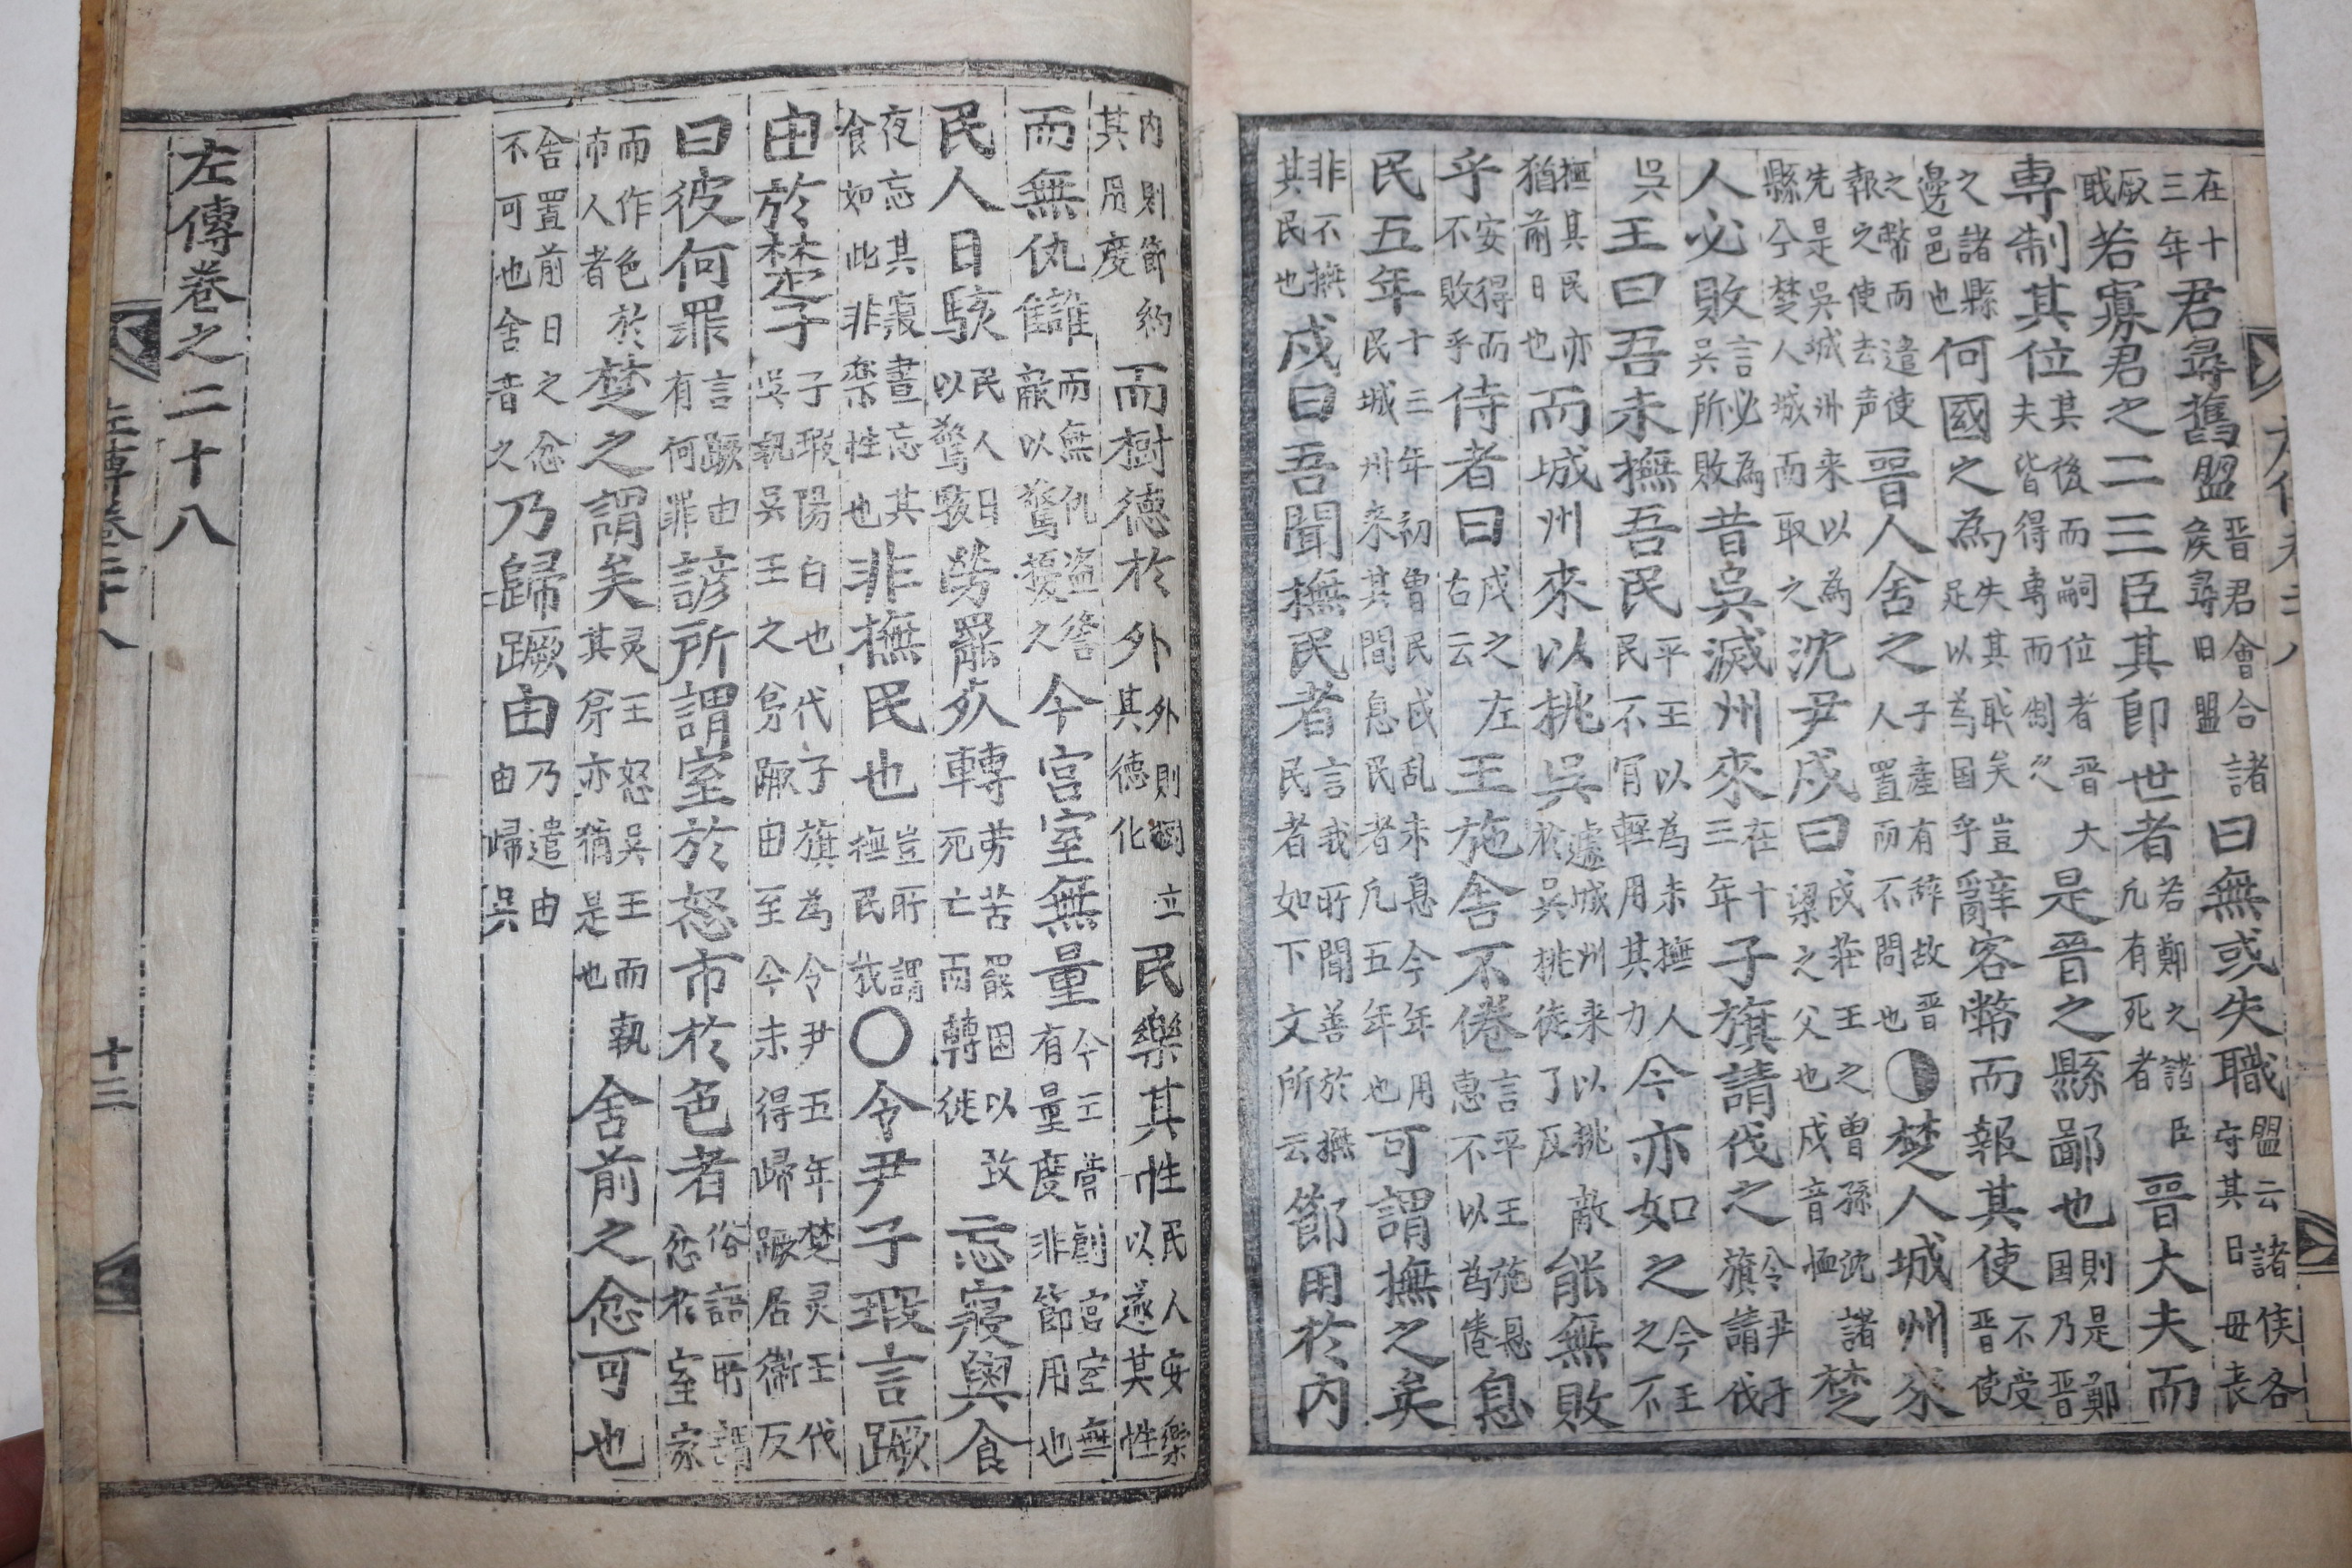 在十三年君尋舊盟晋君會合諸侯尋旧盟曰無或失職盟云諸侯各守其日毋丧
厥戢若寡君之二三臣其卽世者若鄭之諸臣凢有死者晉大夫而
專制其位其後而嗣位者晋大夫皆得專而制之是晉之縣鄙也則是鄭国乃晋
之諸縣邊邑也何國之為失其耺矣豈足以為国乎辭客幣而報其使不受晋使
之幣而遣使報之使去声晉人舍之子産有辞故晋人置而不問也◑楚人城州來
先是吳城州来以為縣今楚人城而取之沈尹戍曰戍莊王之曾孫沈諸梁之父也戍音恤楚
人必敗言必為吳所敗昔吳滅州來在十三年子旗請伐之令尹子旗請伐
吳王曰吾未撫吾民平王以為未撫人民不冐輕用其力今亦如之今王之不
撫其民亦猶前日也而城州來以挑吳遽城州来以挑敵於吳挑徒了反能無敗
乎安得而不敗乎侍者曰戍之左右云王施舍不倦言平王施恩惠不以為倦息
民五年十三年初曾民戍乱未息今年用民城州來其間息民者凢五年也可謂撫之矣
非不撫其民也戍曰吾聞撫民者言我所聞善於撫民者如下文所云節用於内
内則節約其用度而樹德於外外則樹立其德化民樂其性民人安樂以遂其性
而無仇讎而無仇盗讐敵以驚擾之今宮室無量今王營創宮室無有量度非節用也
民人日駭民人日以驚駭勞罷死轉劳苦罷困以致死亡而轉徙忘寢與食
夜忘其寢晝忘其食如此非樂性也非撫民也豈所謂撫民我〇令尹子瑕言蹶
由於楚子子瑕陽白也代子旗為令尹五年楚灵王代吳執吳王之弟蹶由至今未得歸蹶居衛反
曰彼何罪言蹶由有何罪諺所謂室於怒市於色者俗語所謂忿於室家
而作色於市人者楚之謂矣灵王怒吳王而執其弟亦猶是也舍前之忿可也
舍置前日之忿不可也舍音之乃歸蹶由乃遣由由歸吳
左傳卷之二十八
左傳卷二十八
十三